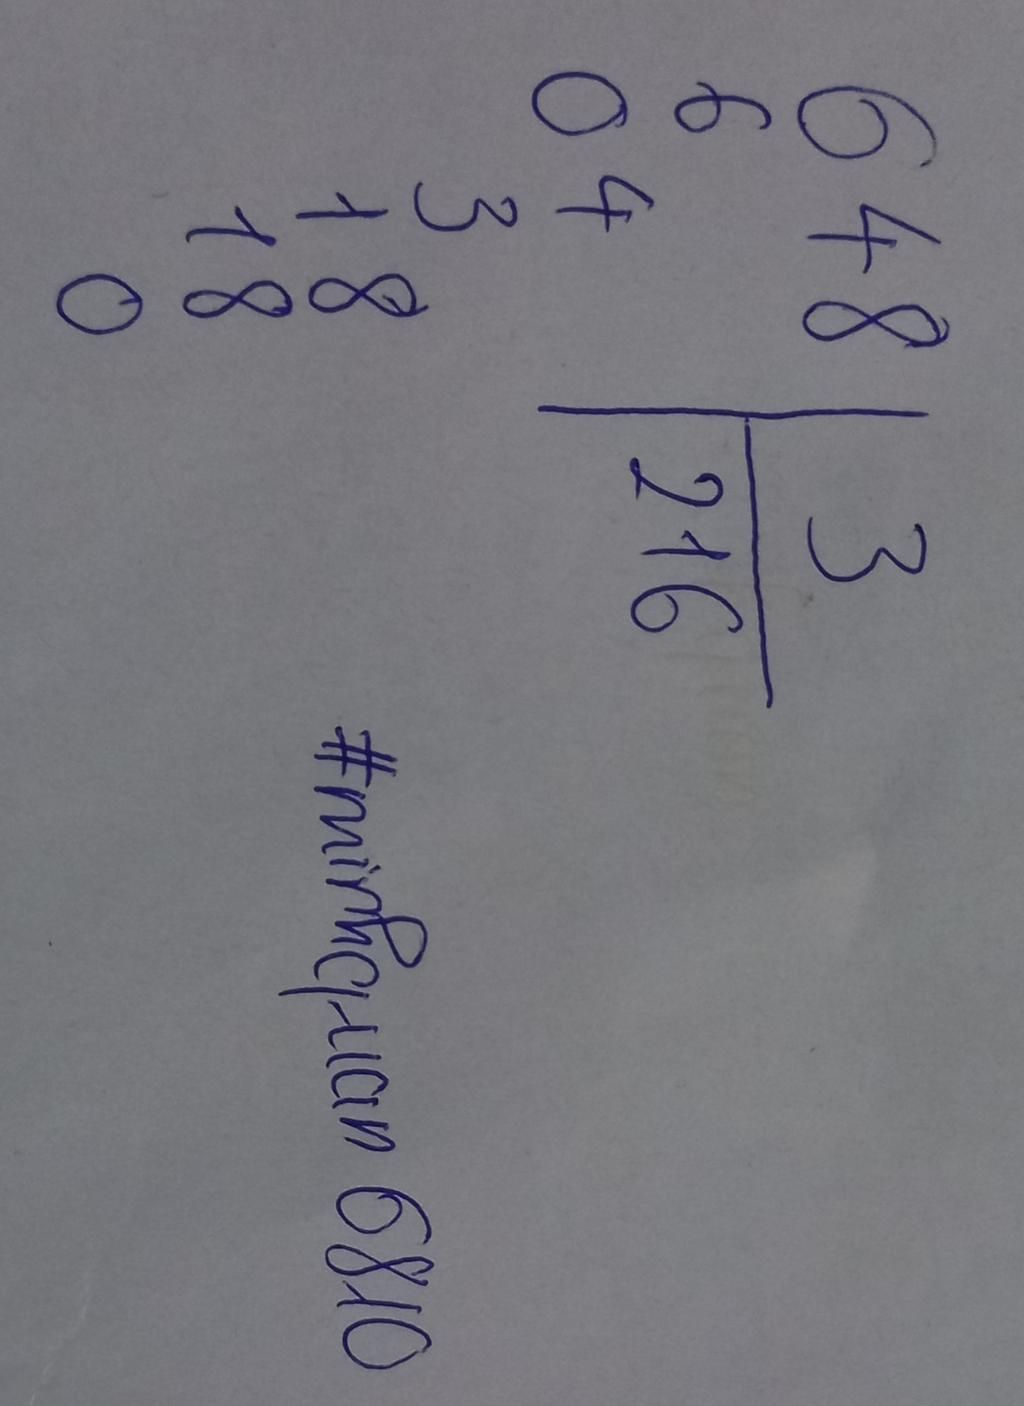 648 3
6 216
04
3
18
18
0
#minhquan 6810